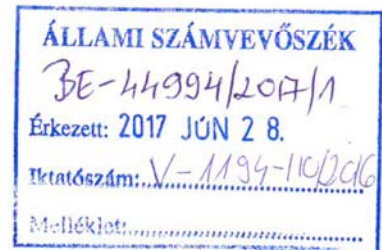 ÁLLAMI SZÁMVEVŐSZÉK
BE-44994/2017/1
Érkezett: 2017 JÚN 28.
Iktatószám: V-1194-110/2016
Melléklet: